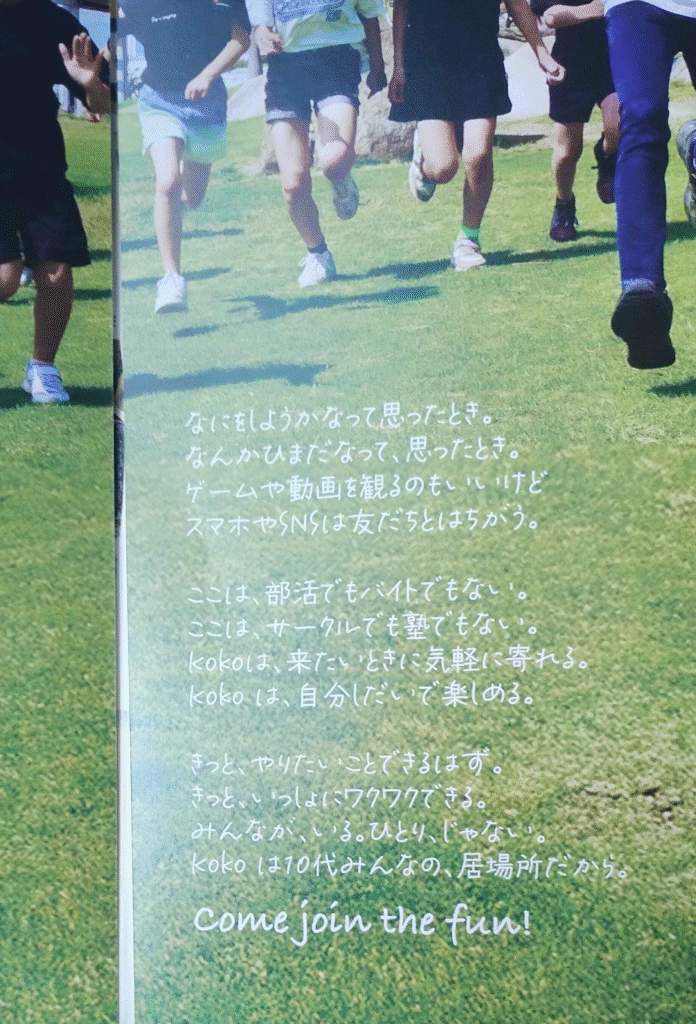 なにをしようかなって思ったとき。
なんかひまだなって、思ったとき。
ゲームや動画を観るのもいいけど
スマホやSNSは友だちとはちがう。
ここは、部活でもバイトでもない。
ここは、サークルでも塾でもない。
kokoは、来たいときに気軽に寄れる。
koko は、自分しだいで楽しめる。
きっと、やりたいことできるはず。
きっと、いっしょにワクワクできる。
みんなが、いる。ひとり、じゃない。
koko は10代みんなの、居場所だから。
Come join the fun!